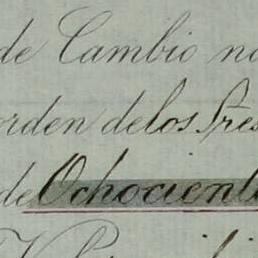 de Cambio no
orden de los Sres
de Ochocient